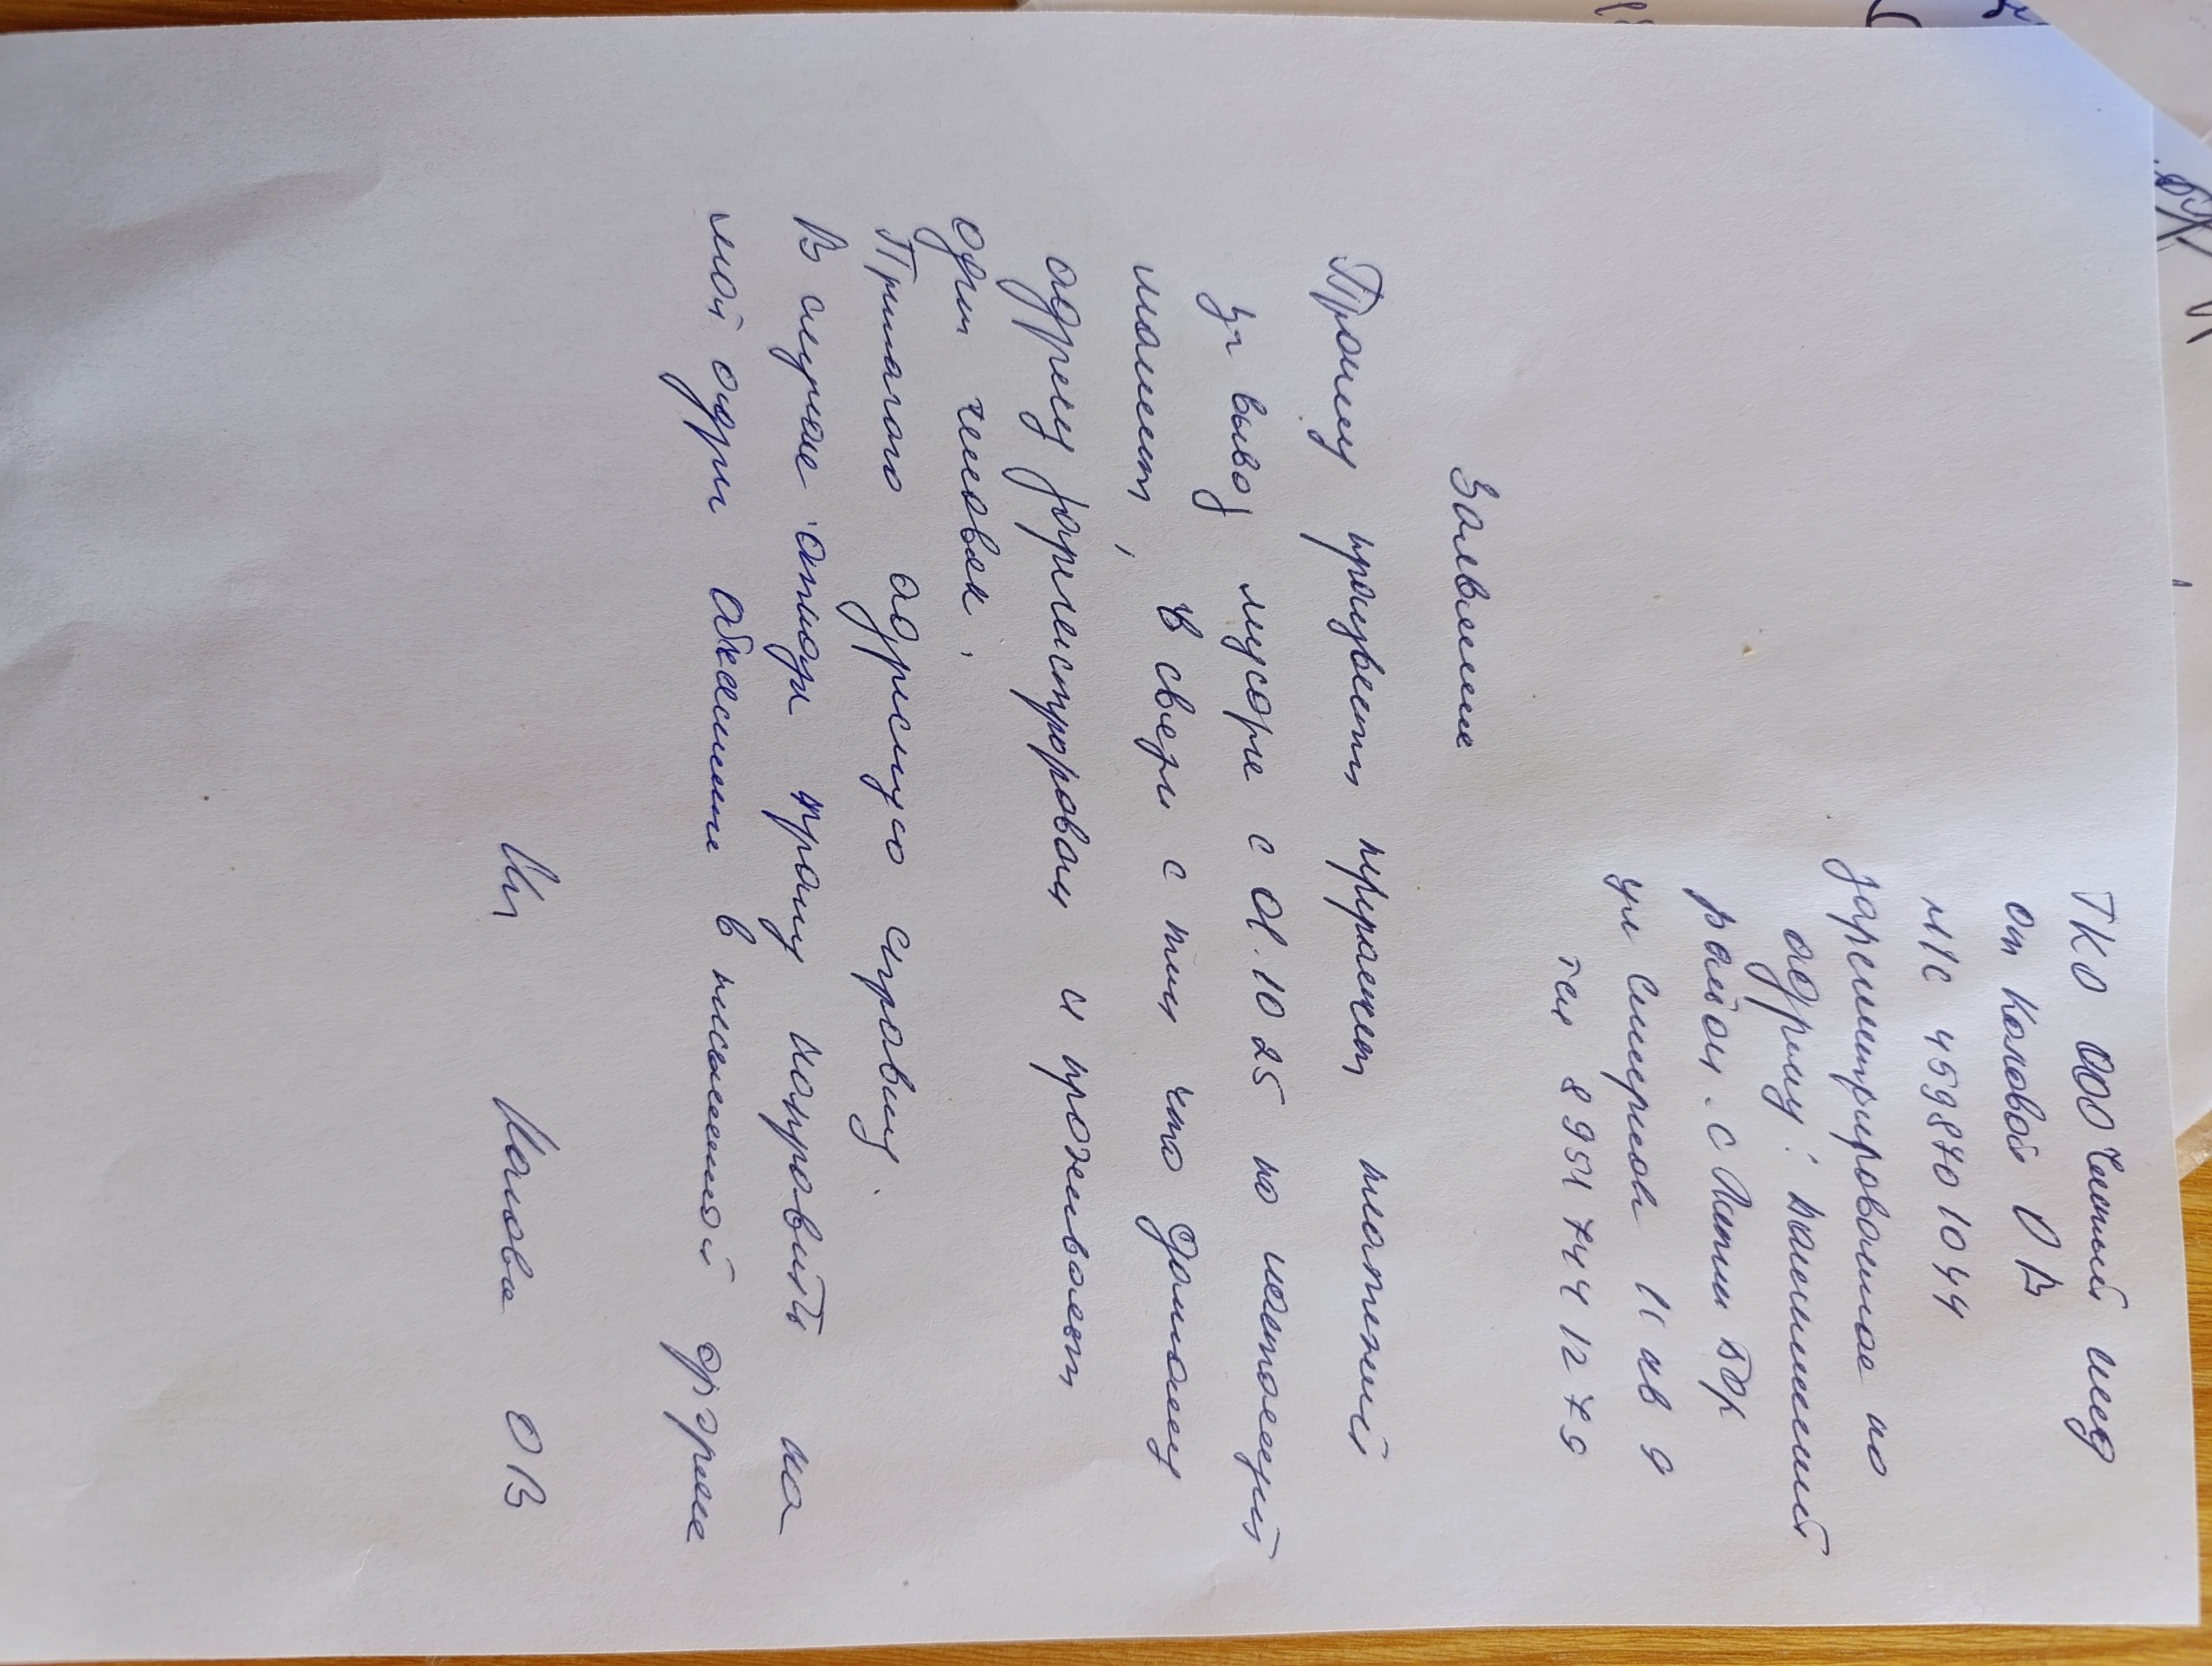 ТКО ООО Чистый след
от Коновой О В
л/с 4598701044
зарегистрированное по
адресу: Каменский
район. с
ул Смирнова 11 кв 9
тел 8 951 744 12 79
Заявление
Прошу произвести перерасчет платежей
за вывоз мусора с 01.10 25 по настоящий
момент, в связи с тем что данному
адресу зарегистрирован и проживает
один человек.
Прилагаю адресную справку.
В случае отказа прошу направить на
мой адрес объяснение в письменной форме
Конова О В